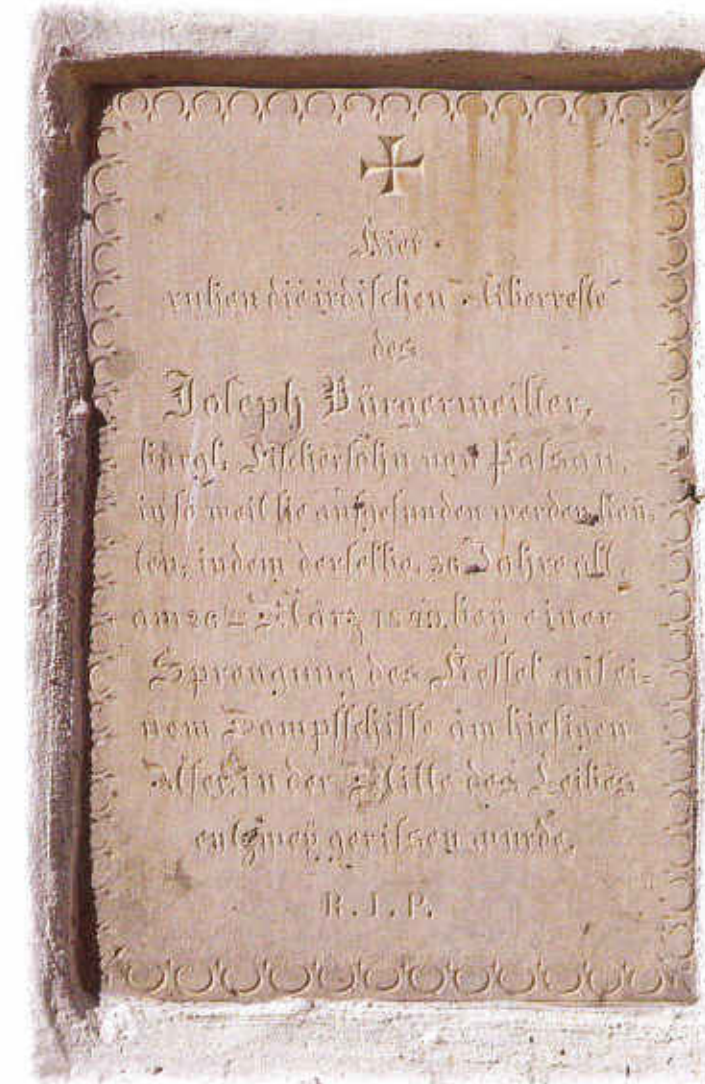 Hier
ruhen die irdischen Überreste
des
Joseph Bürgermeister,
bürgl. Fischersohn von Passau,
in so weit sie aufgefunden werden kon̄,
ten, indem derselbe, 36 Jahre alt,
am 26ten März bey einer
Sprengung des Kessel auf ei=
nem Dampfschiffe am hiesigen
Ufer, in der Mitte des Leibes
entzwey gerissen wurde.
R. I. P.